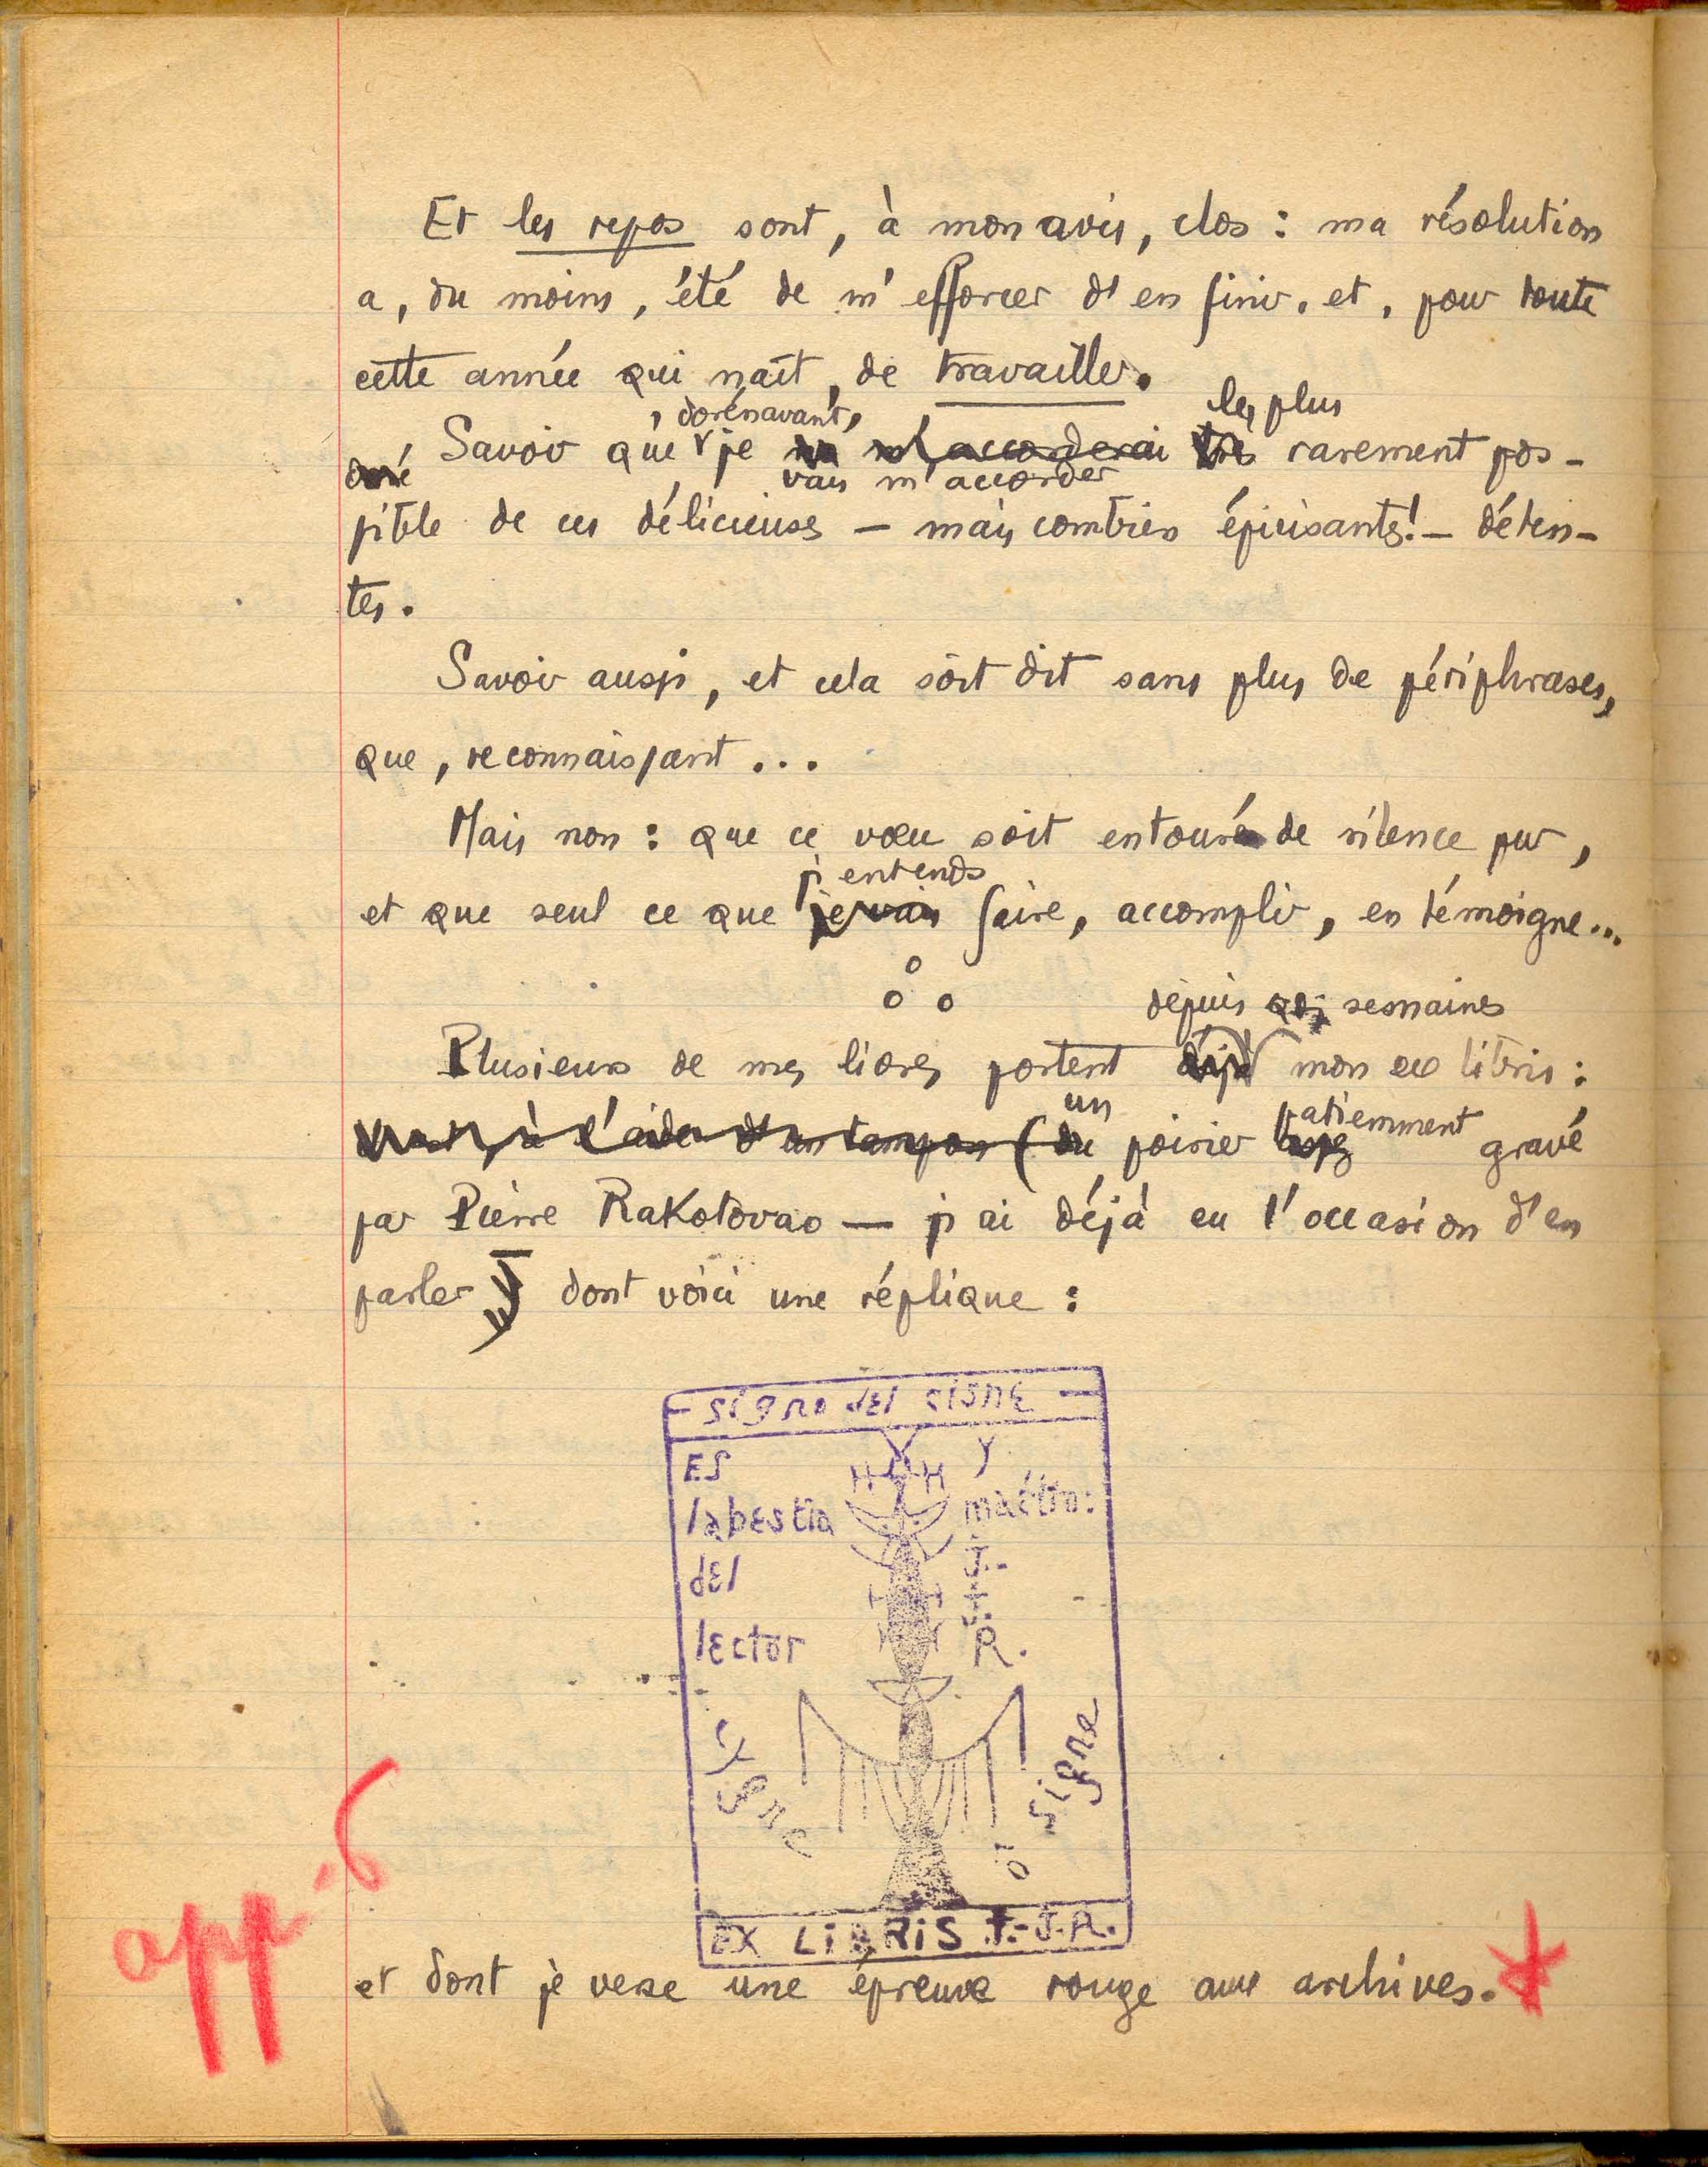 Et les repos sont, à mon avis, clos : ma résolution
a, du moins, été de m'efforcer d'en finir, et, pour toute
cette année qui naît, de travailler.
, dorénavant,
les plus
Savoir que je m'accorderai très rarement pos-
vais m'accorder
sible de ces délicieuses – mais combien épuisants! – déten-
tes.
Savoir aussi, et cela soit dit sans plus de périphrases,
que, reconnaissant ...
Mais non : que ce vœu soit entouré de silence pur,
j'entends
et que seul ce que je vais faire, accomplir, en témoigne...
depuis semaines
Plusieurs de mes livres portent déjà mon ex libris :
un patiemment
à l'aide d'un tampon (du poirier gravé
par Pierre Rakotovao — j'ai déjà eu l'occasion d'en
parler — dont voici une réplique :
- signo del cisne -
ES
la bestia
del
lector
y
maéstro:
J.-
J.
R.
cygne
ou signe
EX LiBRiS J.-J.R.
et dont je verse une épreuve rouge aux archives.
app. 6